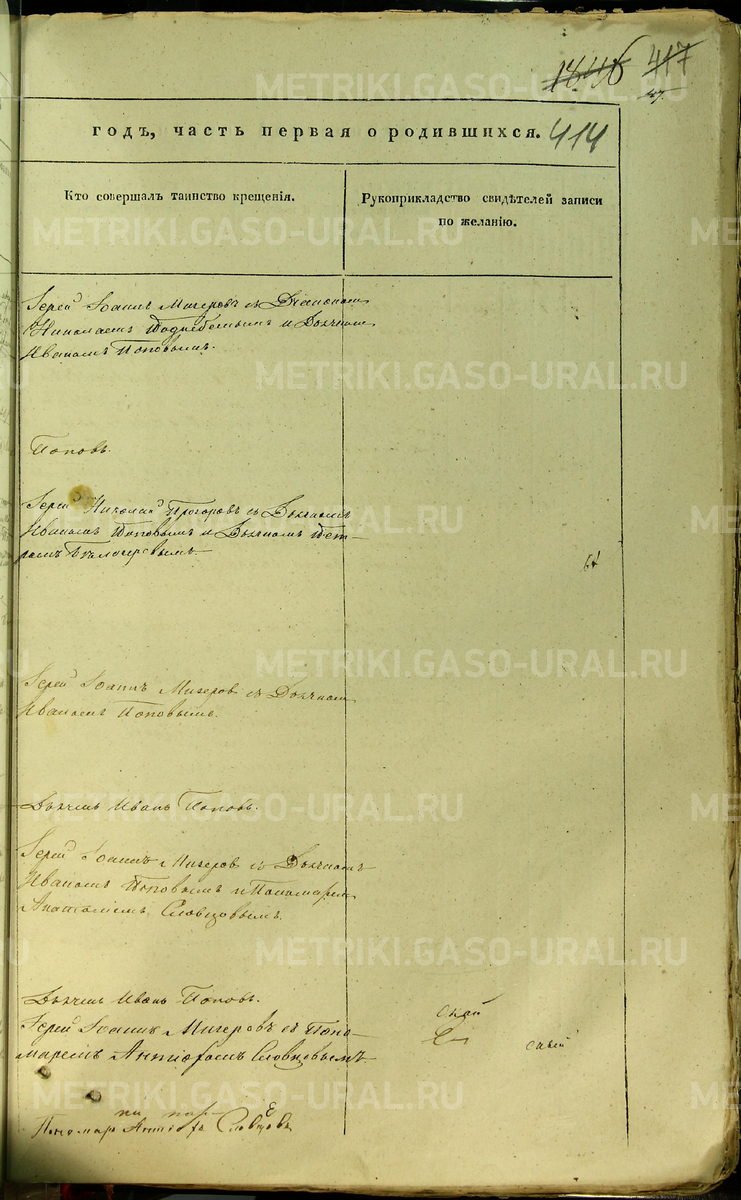 1846 417
417
годъ, часть первая о родившихся. 414
Кто совершалъ таинство крещенія.
Рукоприкладство свидѣтелей записи
по желанію.
Іерей Іоаннъ Мигеровъ съ Діакономъ
Николаемъ и Дьячкомъ
Иваномъ Поповымъ.
Поповъ.
Іерей Николай съ Дьячкомъ
Иваномъ Поповымъ и Дьячкомъ Пет-
ромъ
Іерей Іоаннъ Мигеровъ съ Дьячкомъ
Иваномъ Поповымъ.
Дьячекъ Иванъ Поповъ.
Іерей Іоаннъ Мигеровъ съ Дьячкомъ
Иваномъ Поповымъ и Пономаремъ
Словцовымъ.
Дьячекъ Иванъ Поповъ.
Іерей Іоаннъ Мигеровъ съ Поно-
маремъ Словцовымъ
скай
Пономарь Словцовъ
METRIKI.GASO-URAL.RU